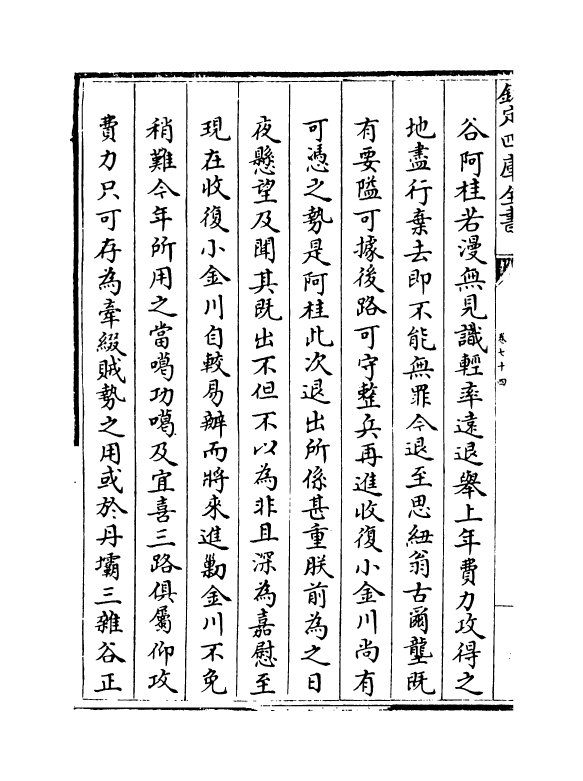 欽定四庫全書
卷七十四
谷阿桂若漫無見識輕率遠退舉上年費力攻得之
地盡行棄去即不能無罪今退至思紐翁古爾壟既
有要隘可據後路可守整兵再進收復小金川尚有
可憑之勢是阿桂此次退出所係甚重朕前為之日
夜懸望及聞其既出不但不以為非且深為嘉慰至
現在收復小金川自較易辦而將來進勦金川不免
稍難今年所用之當噶功噶及宜喜三路俱屬仰攻
費力只可存為牽綴賊勢之用或於丹壩三雜谷正